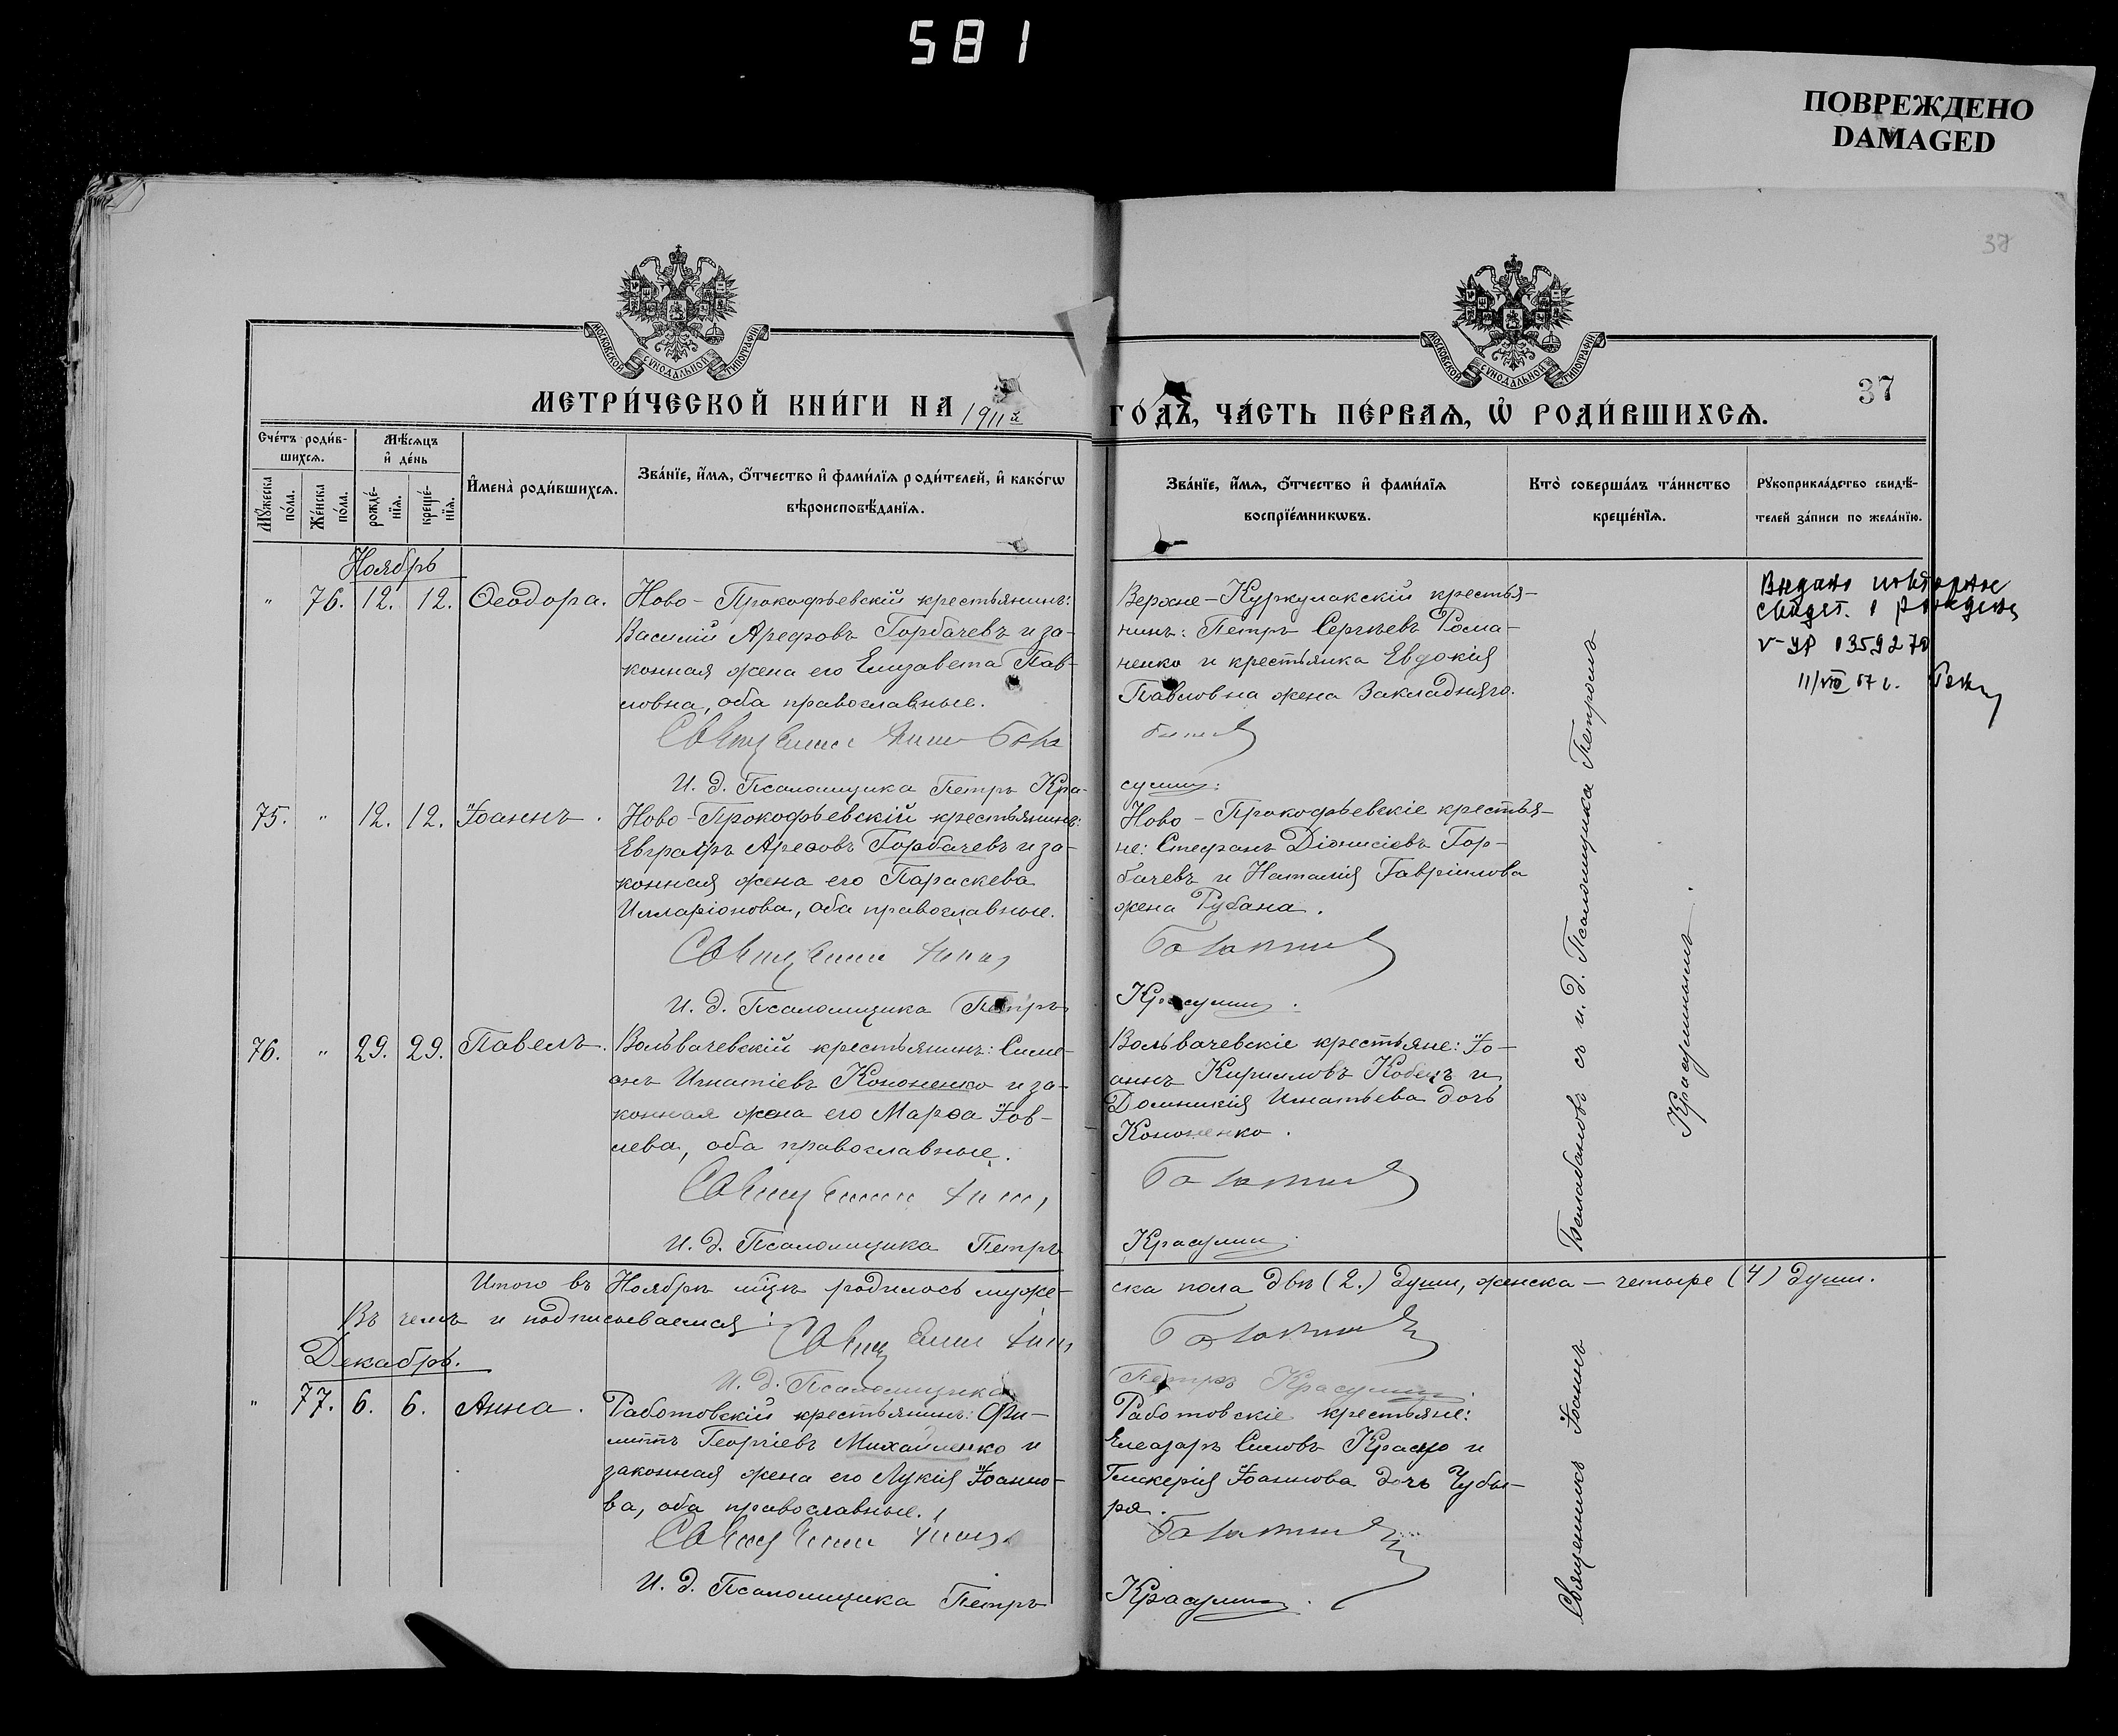 581
ПОВРЕЖДЕНО
DAMAGED
37
МОСКОВСКОЙ СѴНОДАЛЬНОЙ ТИПОГРАФІИ
МОСКОВСКОЙ СѴНОДАЛЬНОЙ ТИПОГРАФІИ
37
МЕТРИ́ЧЕСКОЙ КНИ́ГИ НА 1911й ГО́ДЪ, ЧА́СТЬ ПЕ́РВАЯ, Ѡ҆ РОДИ́ВШИХСѦ.
Сче́тъ роди́в-
шихсѧ.
Мꙋ́жеска по́ла.
Же́нска по́ла.
Мѣ́сѧцъ и҆ де́нь
рожде́-
нїѧ.
креще́-
нїѧ.
И҆мена̀ роди́вшихсѧ.
Зва́нїе, и҆́мѧ, ѻ҆́тчество и҆ фами́лїѧ роди́телей, и҆ како́гѡ
вѣроисповѣ́данїѧ.
Зва́нїе, и҆́мѧ, ѻ҆́тчество и҆ фами́лїѧ
воспрїе́мникѡвъ.
Кто̀ соверша́лъ та́инство
креще́нїѧ.
Рꙋкоприкла́дство свидѣ́-
телей за́писи по жела́нїю.
Ноябрь
" 76. 12. 12. Ѳеодора.
Ново-Прокофьевскій крестьянинъ:
Василій Арефовъ Горбачевъ и за-
конная жена его Елизавета Пав-
ловна, оба православные.
Священникъ
И. д. Псаломщика Петръ Кра-
Верхне-Куркулакскій крестья-
нинъ: Петръ Сергѣевъ Рома-
ненко и крестьянка Евдокія
Павловна жена Закладняго.
сулинъ:
Выдано повторное
свидет. о рождении
11/VIII 57 г.
75. " 12. 12. Іоаннъ.
Ново-Прокофьевскій крестьянинъ:
Евграфъ Ареѳовъ Горбачевъ и за-
конная жена его Параскева
Илларіонова, оба православные.
Священникъ
И. д. Псаломщика Петръ
Ново-Прокофьевскіе крестья-
не: Стефанъ Діонисіевъ Гор-
бачевъ и Наталія Гавріилова
жена Рубана.
Красулинъ.
76. " 29. 29. Павелъ.
Вольвачевскій крестьянинъ: Симе-
онъ Игнатіевъ Кононенко и за-
конная жена его Марѳа Іов-
лева, оба православные.
Священникъ
И. д. Псаломщика Петръ
Вольвачевскіе крестьяне: Іо-
аннъ Кирилловъ Кобецъ и
Домникія Игнатьева дочь
Кононенко.
Красулинъ.
Итого въ Ноябрѣ мцѣ родилось муже-
ска пола двѣ (2.) души, женска - четыре (4) души.
Въ чемъ и подписываемся:
Священникъ
И. д. Псаломщика
Петръ Красулинъ.
Декабрь.
" 77. 6. 6. Анна.
Работовскій крестьянинъ: Фи-
липпъ Георгіевъ Михайленко и
законная жена его Лукія Іоанно-
ва, оба православные.
Священникъ
И. д. Псаломщика Петръ
Работовскіе крестьяне:
Елеазаръ Силовъ и
Гликерія Іоаннова дочь Чубы-
ря.
Красулинъ.
Священникъ Іоаннъ Балабановъ съ и. д. Псаломщика Петромъ
Красулинымъ.